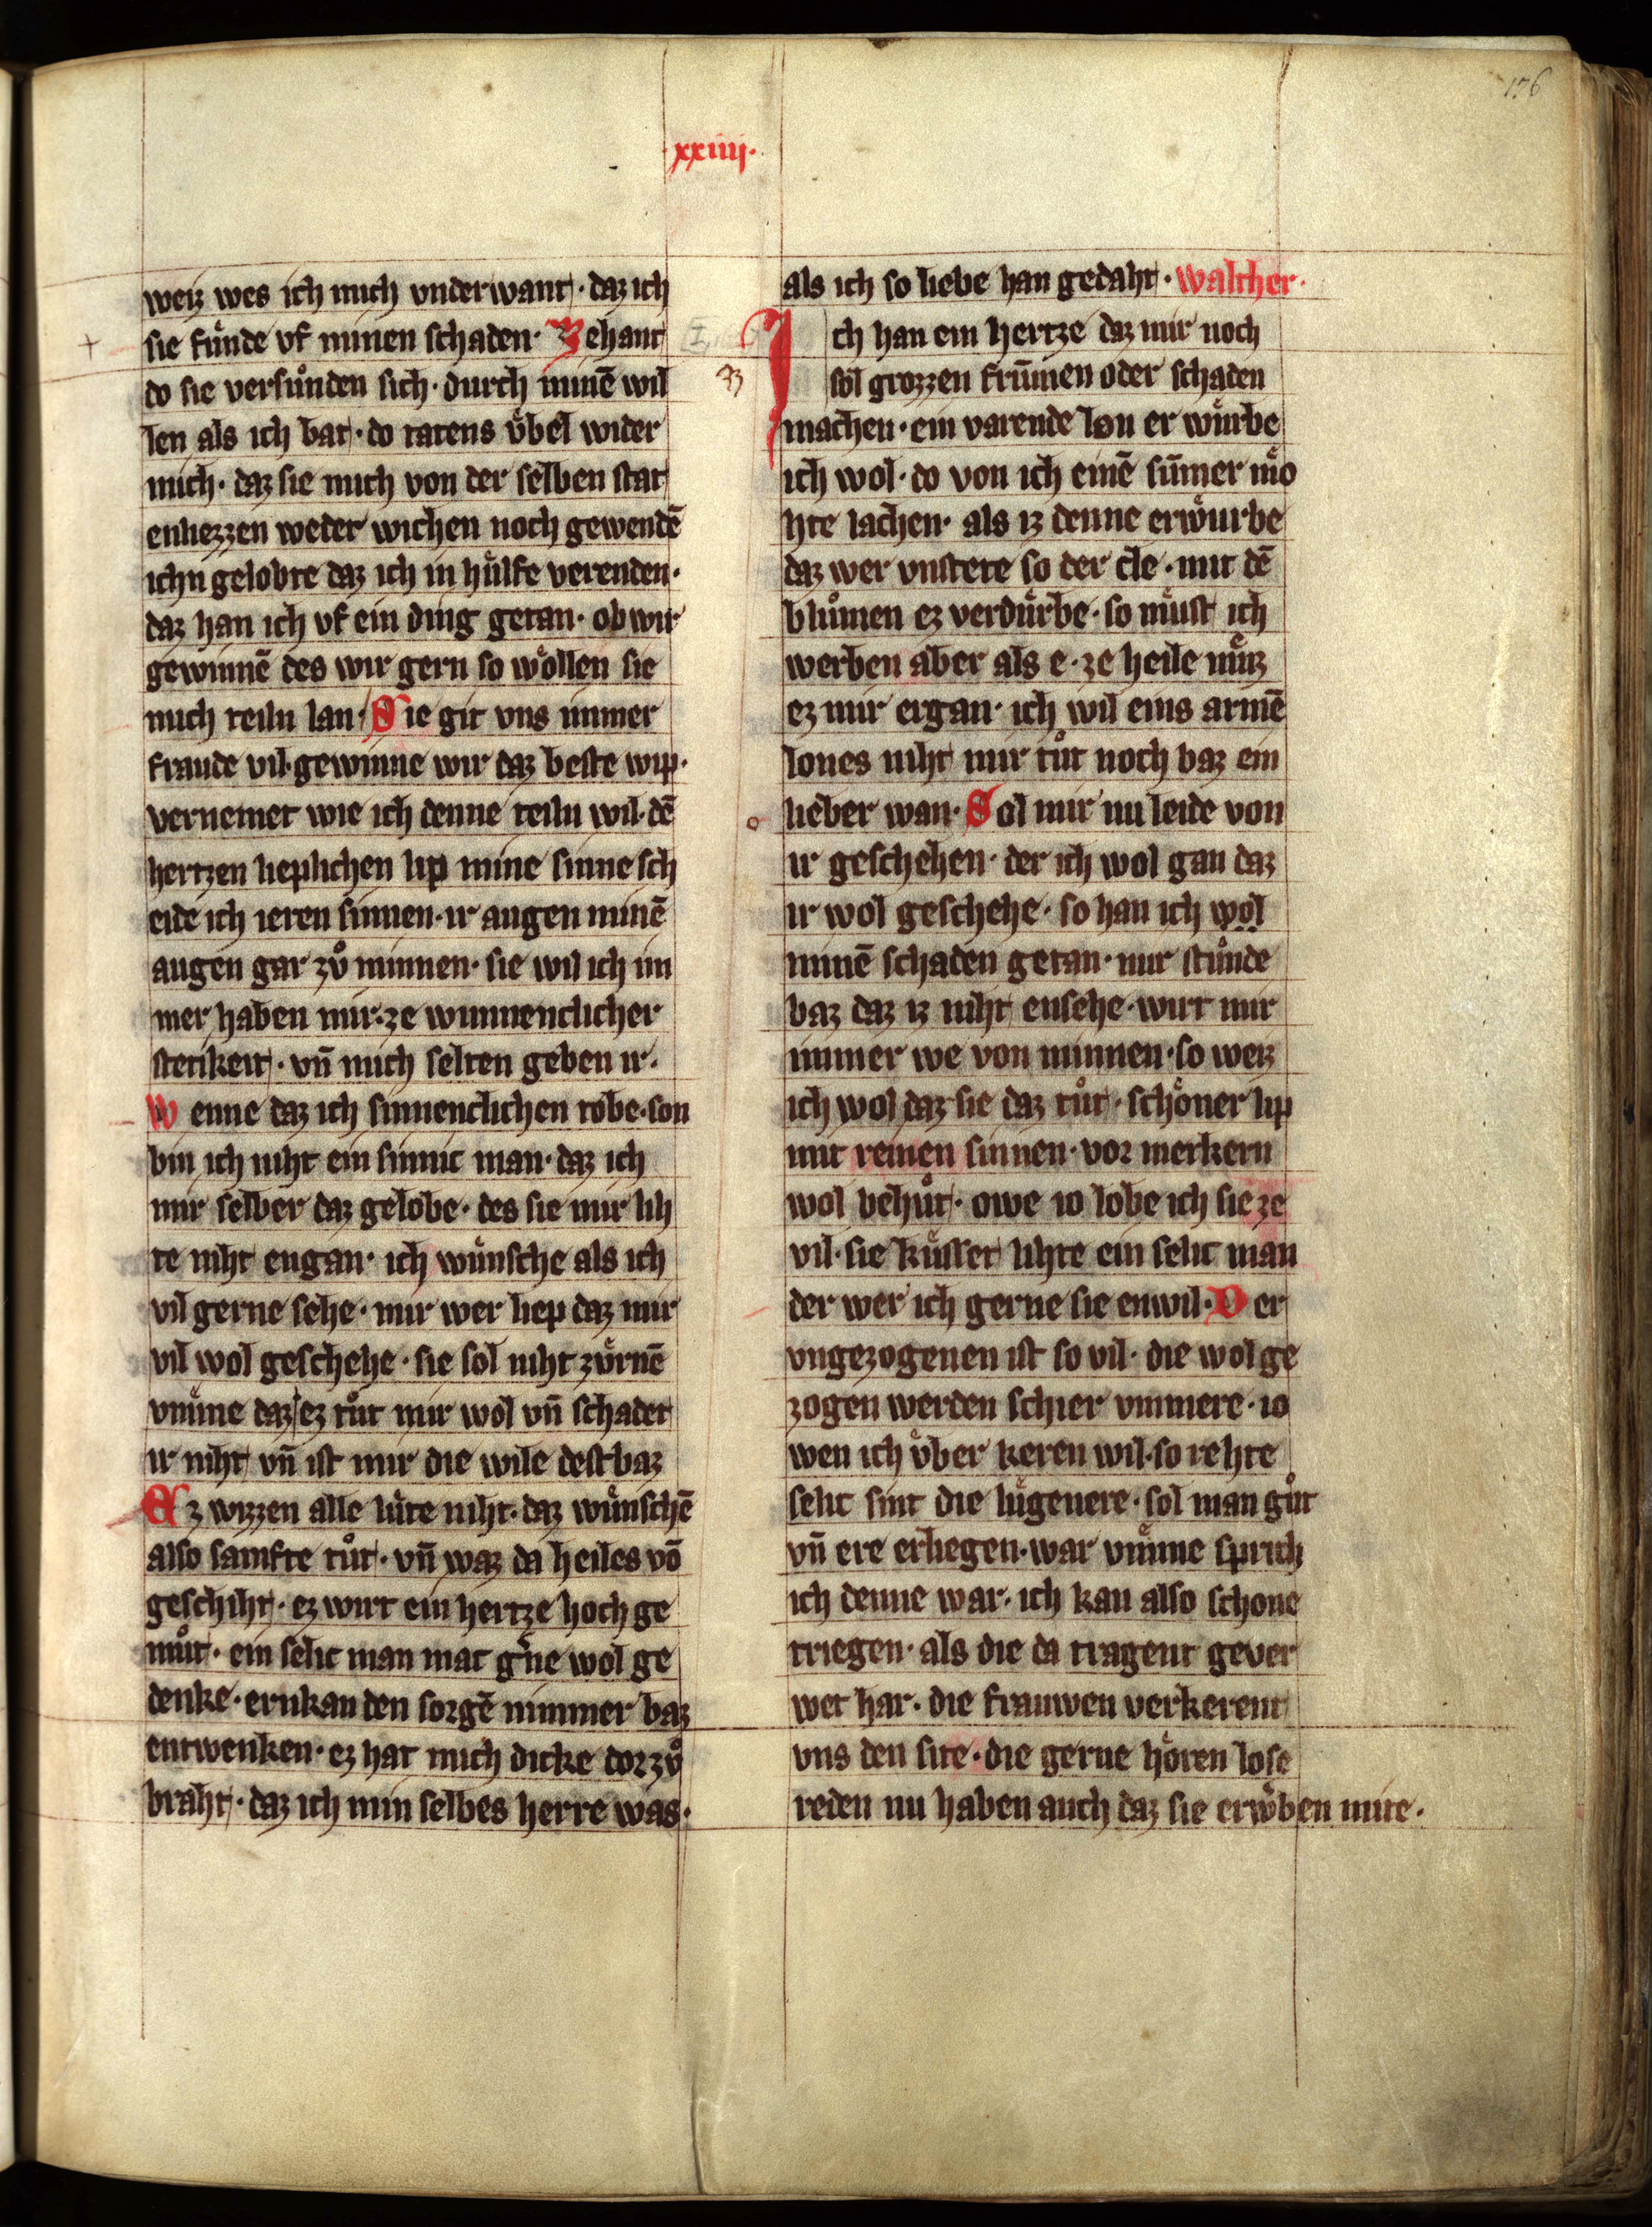 176
xxiiij·
weiz wes ich mich vnderwant· daz ich
sie fuͤnde vf minen schaden· Behant
do sie versuͦnden sich· durch minē wil
len als ich bat· do tatens v̈bel wider
mich· daz sie mich von der selben stat
enliezzen weder wichen noch gewendē
ichn gelobte daz ich in huͤlfe verenden·
daz han ich vf ein ding getan· ob wir
gewinnē des wir gern so woͤllen sie
mich teiln lan· Sie git vns immer
fraude vil· gewinne wir daz beste wip·
vernemet wie ich denne teiln wil· dē
hertzen lieplichen lip mine sinne sch
eide ich ieren sinnen· ir augen minē
augen gar zuͦ minnen· sie wil ich im
mer haben mir· ze wunnenclicher
stetikeit· vn̄ mich selten geben ir·
Wenne daz ich sinnenclichen tobe· son
bin ich niht ein sinnic man· daz ich
mir selber daz gelobe· des sie mir lih
te niht engan· ich wuͤnsche als ich
vil gerne sehe· mir wer liep daz mir
vil wol geschehe· sie sol niht zuͤrnē
vmͤme daz ez tuͦt mir wol vn̄ schadet
ir niht vn̄ ist mir die wile destbaz
Ez wizzen alle luͤte niht· daz wuͤnschē
also samfte tuͦt· vn̄ waz da heiles vō
geschiht· ez wirt ein hertze hoch ge
muͦt· ein selic man mac g'ne wol ge
denke· ernkan den sorgē nimmer baz
entwenken· ez hat mich dicke dorzuͦ
braht· daz ich min selbes herre was·
als ich so liebe han gedaht· walther·
33
Ich han ein hertze daz mir noch
sol grozzen frūmen oder schaden
machen· ein varende lon er wuͤrbe
ich wol· do von ich einē sūmer moͤ
hte lachen· als iz denne erwuͤrbe
daz wer vnstete so der cle· mit dē
bluͦmen ez verduͤrbe· so muͤst ich
werben aber als e· ze heile muͤz
ez mir ergan· ich wil eins armē
lones niht mir tuͦt noch baz ein
lieber wan· Sol mir nu leide von
ir geschehen· der ich wol gan daz
ir wol geschehe· so han ich wol
minē schaden getan· mir stuͤnde
baz daz iz niht ensehe· wirt mir
immer we von minnen· so weiz
ich wol daz sie daz tuͦt· schoͤner lip
mit reinen sinnen· vor merkern
wol behuͦt· owe io lobe ich sie ze
vil· sie kuͤsset lihte ein selic man
der wer ich gerne sie enwil· Der
vngezogenen ist so vil· die wol ge
zogen werden schier vnmere· io
wen ich v̈ber keren wil· so rehte
selic sint die luͤgenere· sol man guͦt
vn̄ ere erliegen· war vmͤme sprich
ich denne war· ich kan also schone
triegen· als die da tragent gever
wet har· die frauwen verkerent
vns den site· die gerne hoͤren lose
reden nu haben auch daz sie erwͤben mite·